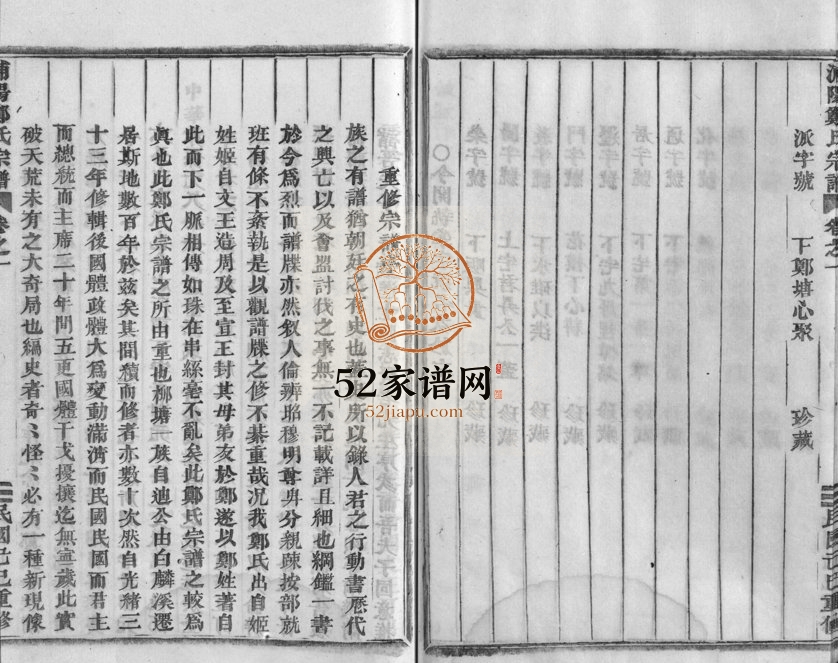 浦陽鄭氏宗譜
卷之一
民國己巳重修
派字號　下鄭塘心聚　珍藏
重修宗譜
族之有譜猶朝廷之有史也　史所以錄人君之行動書歷代
之興亡以及會盟討伐之事無一不記載詳且細也綱鑑一書
於今為烈而譜牒亦然敘人倫辨昭穆明尊卑分親疎按部就
班有條不紊孰是以觀譜牒之修不綦重哉况我鄭氏出自姬
姓姬自文王造周及至宣王封其母弟友於鄭遂以鄭姓著自
此而下一脈相傳如珠在串絲毫不亂矣此鄭氏宗譜之較為
眞也此鄭氏宗譜之所由重也柳塘一族自迪公由白麟溪遷
居斯地數百年於茲矣其間積而修者亦數十次然自光緒三
十三年修輯後國體政體大為變動滿清而民國民國而君主
而總統而主席二十年間五更國體干戈擾攘迄無寧歲此實
破天荒未有之大奇局也編史者奇〻怪〻必有一種新現像
浦陽鄭氏宗譜
卷之一
民國己巳重修
52家谱网
52jiapu.com